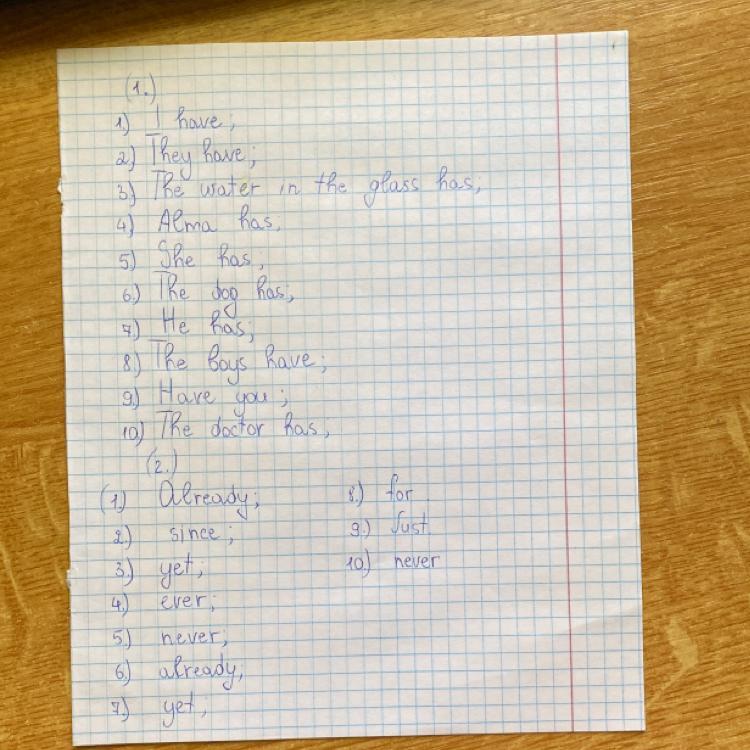 (1.)
1.) I have;
2.) They have;
3.) The water in the glass has;
4.) Alma has;
5.) She has;
6.) The dog has;
7.) He has;
8.) The boys have;
9.) Have you;
10.) The doctor has;
(2.)
(1) Already;
2.) since;
3.) yet;
4.) ever;
5.) never;
6.) already;
7.) yet;
8.) for
9.) Just
10.) never